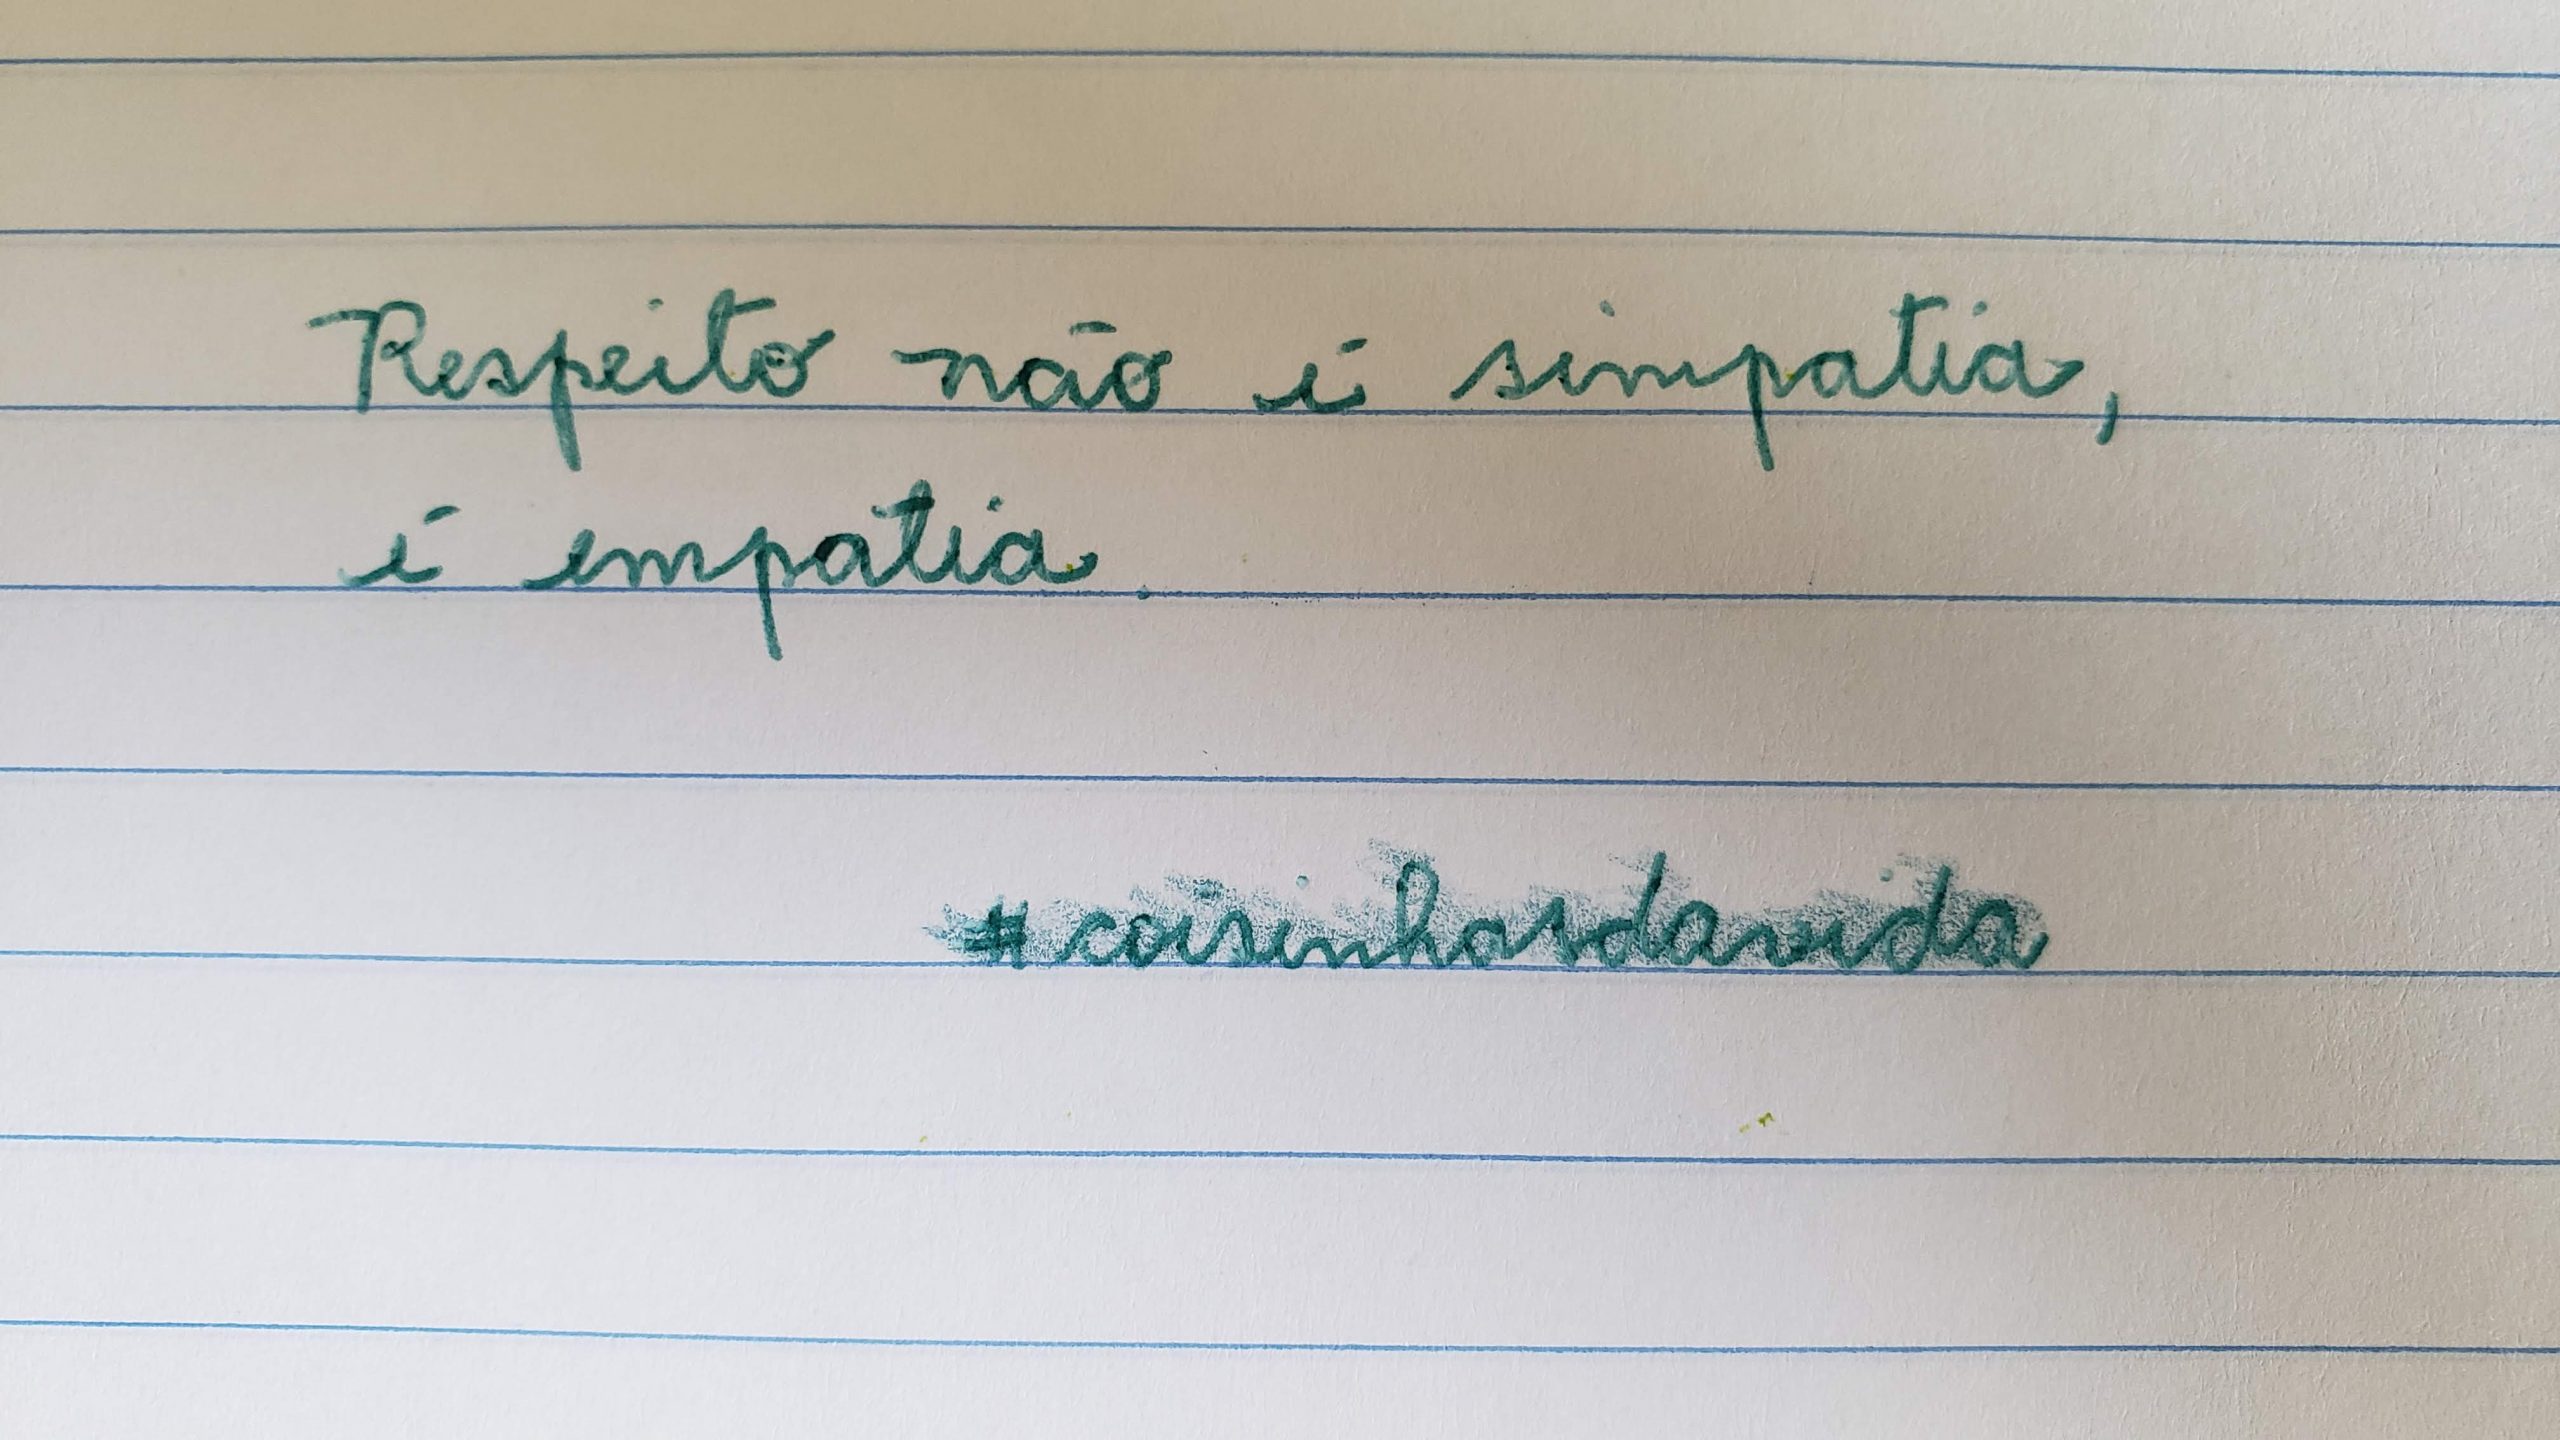 Respeito não é simpatia,
é empatia.
#coisinhasdavida